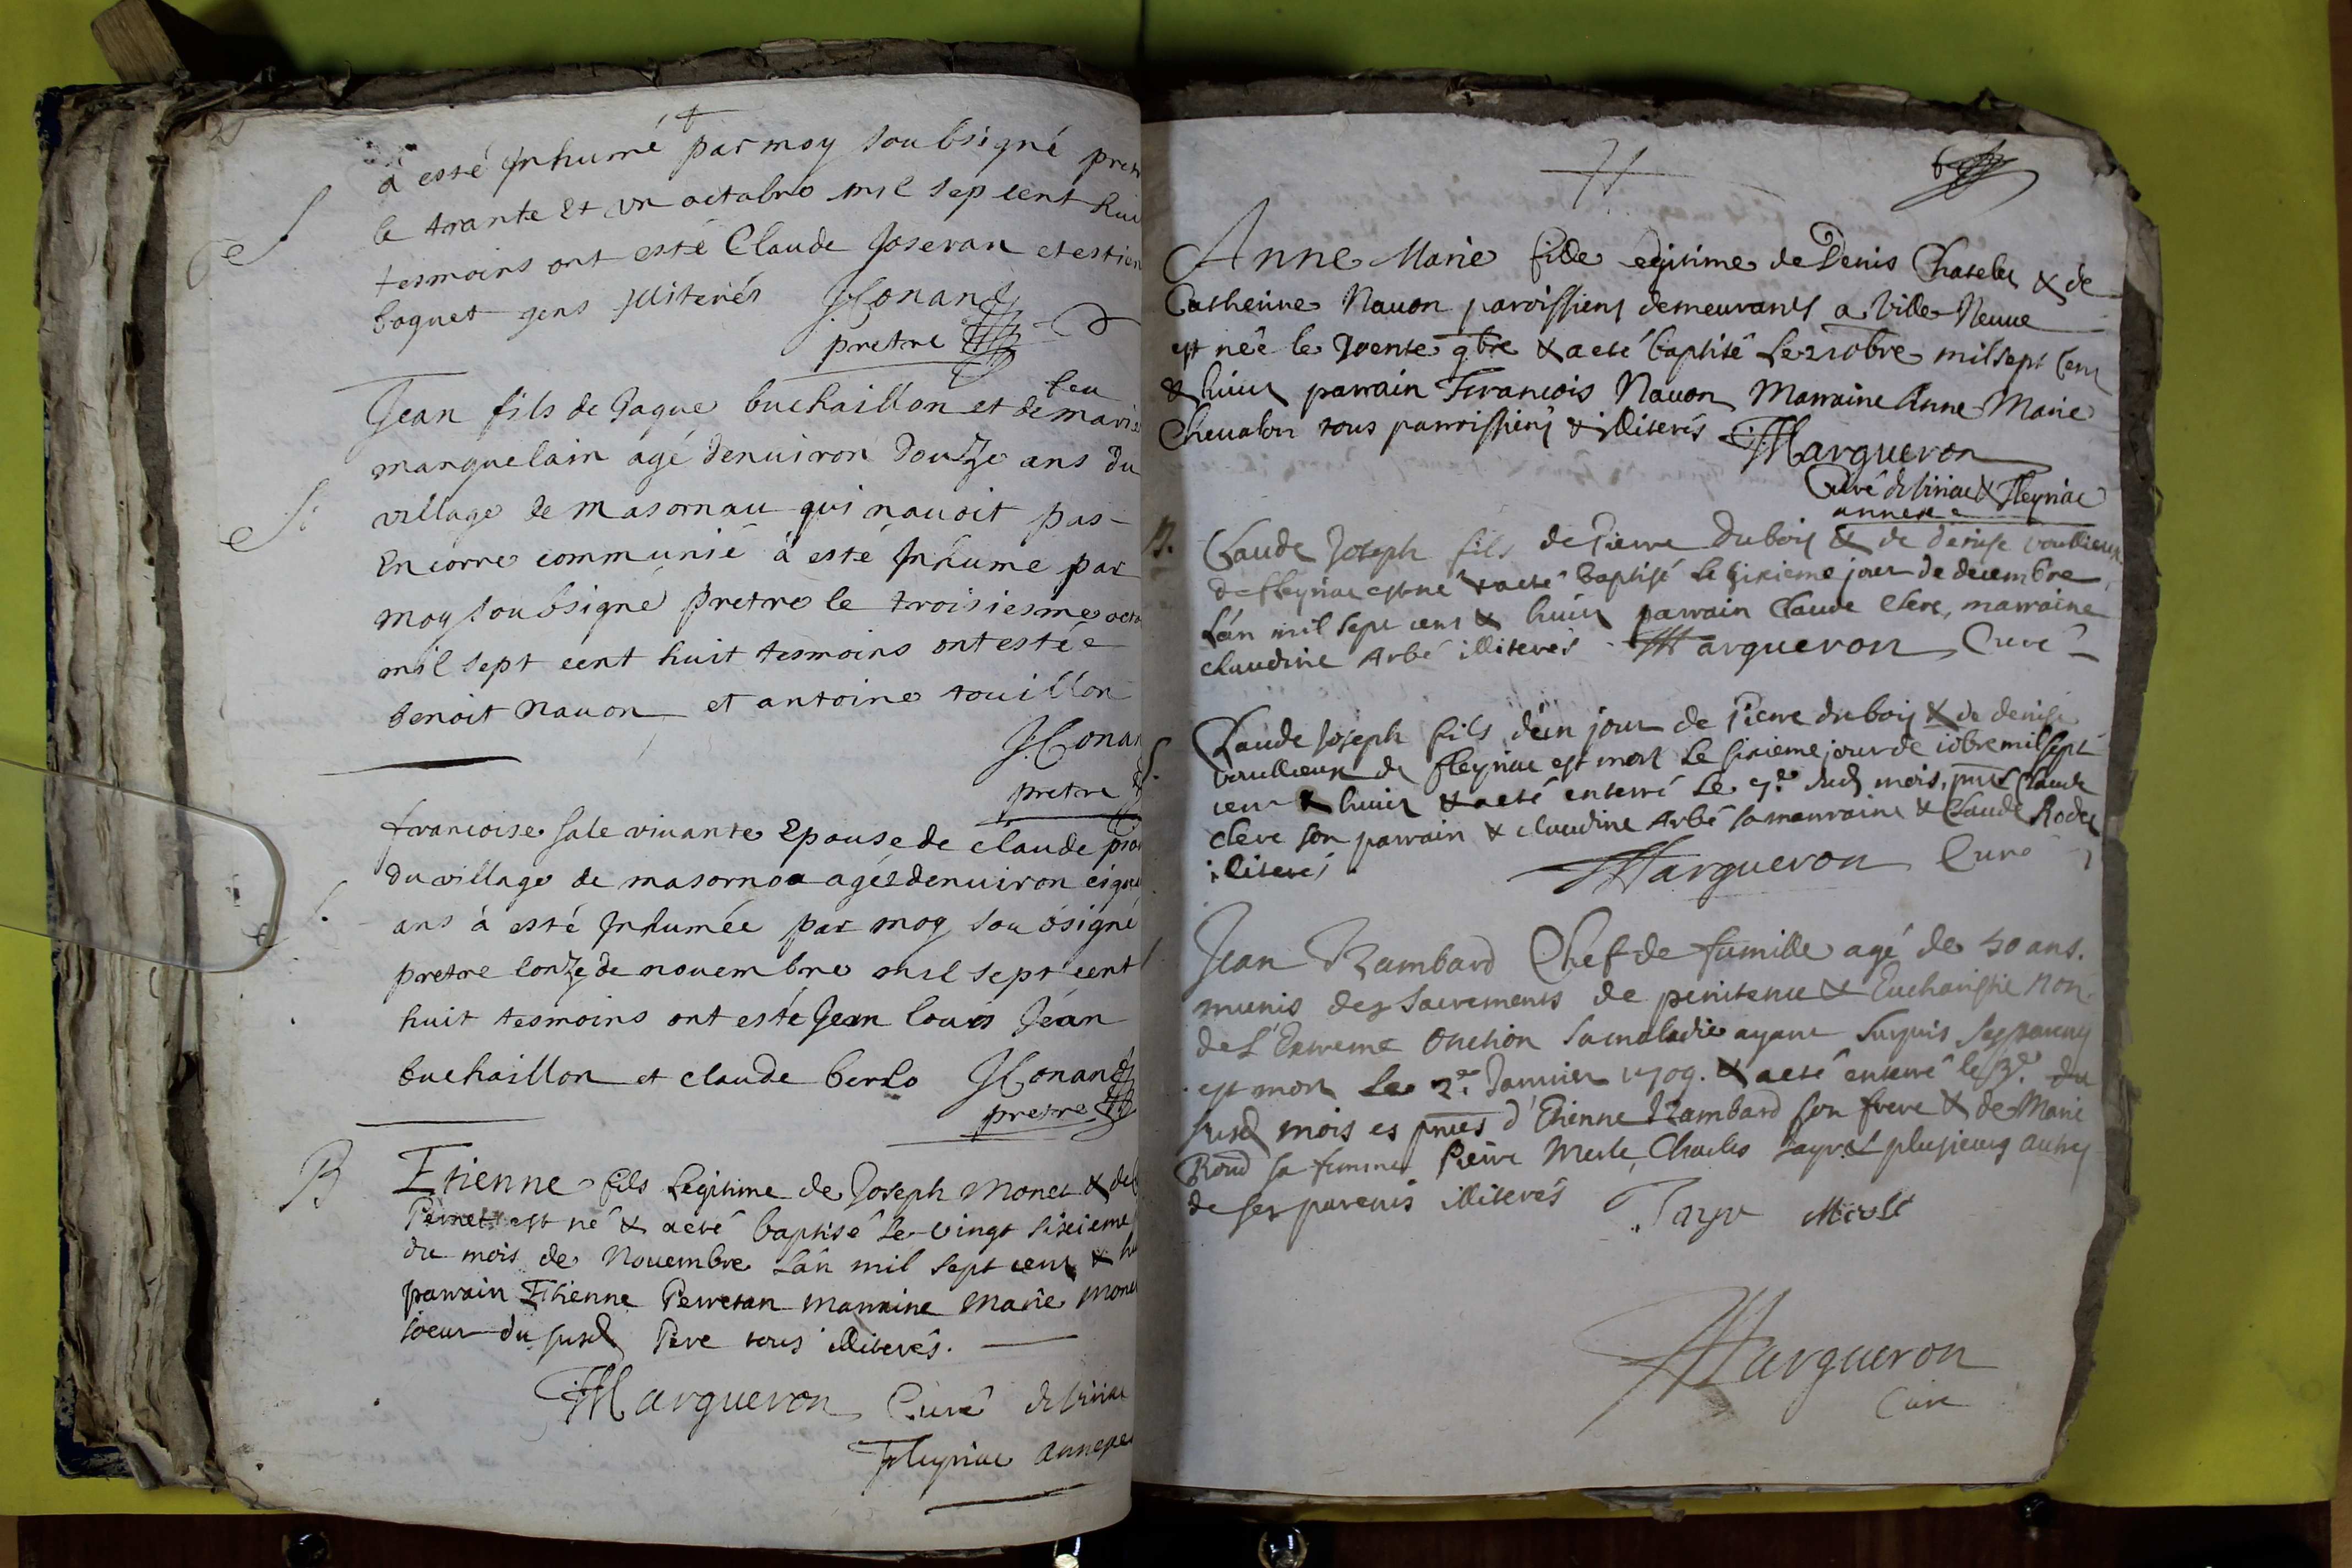 à esté Inhumé par moy soubsigné pretr
le trante et un octobre mil sept cent hui
tesmoins ont esté Claude Joseran et estien
boquet gens illiterés JConand
pretre
S
Jean fils de Jaque buchaillon et de feu marie
manquelain agé denuiron douze ans du
village de masornau qui nauoit pas
Encorre communié à esté Inhumé par
moy soubsigné pretre le troisiesme octo
mil sept cent huit tesmoins ont estée
benoit nauon et antoine touillon
JConan
pretre
S.
francoise sale viuante Epouse de claude
du village de masornoa agée denuiron
ans à esté Inhumée par moy soubsigné
pretre lonze de nouembre mil sept cent
huit tesmoins ont esté Jean louis Jean
buchaillon et claude berlo JConand
pretre
B
Etienne fils Legitime de Joseph Monet & de
Pernet est né & a eté baptisé le vingt sixieme
du mois de Nouembre L'an mil sept cent & hu
parrain Etienne Perretan marraine Marie Mone
soeur du susd Pere tous illiterés.
Margueron Curé de Siriac
Fleyriac annexe
Anne Marie fille legitime de Denis Chatelet & de
Catherine Nauon paroissiens demeurants a Ville Neuue
est née le trente 9bre & a eté baptisé le 2 10bre mil sept Cent
& huict parrain Francois Nauon Marraine Anne Marie
Cheualon tous parroissiens & illiterés Margueron
Curé de Siriac & Fleyriac
annexe
B.
Claude Joseph fils de Pierre Dubois & de denise voullieux
de fleyriac est né & a eté baptisé le sixieme jour de decembre
L'an mil sept cent & huict parrain Claude Clere, marraine
claudine Arbé illiterés Margueron Curé
S.
Claude Joseph fils d'un jour de Pierre dubois & de denise
voullieux de fleyriac est mort le sixieme jour de 10bre mil sept
cent & huict & a eté enterré le 7e dud mois, pnts Claude
Clere son parrain & claudine Arbé sa marraine & Claude Rodet
illiterés Margueron Curé
Jean Rambard Chef de famille agé de 50 ans.
munis des sacrements de penitence & Eucharistie non
de L'Extreme Onction sa maladie ayant surpris ses parens
est mort le 2e Januier 1709. & a eté enterré le 3e du
susd mois es pnces d'Etienne Rambard son frere & de Marie
Rond sa femme Pierre Merle, Charles Tayr & plusieurs autres
de ses parents illiterés Tayr Merle
Margueron
Curé